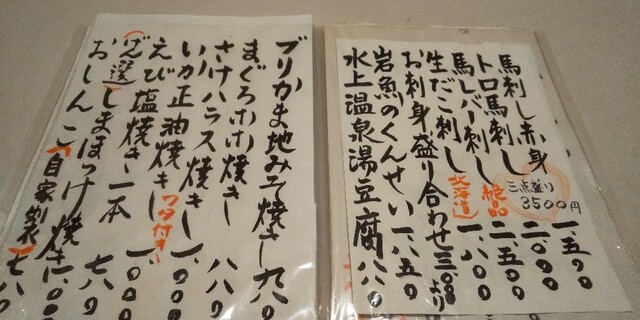 馬刺し赤身 一、五〇〇
トロ馬刺し 二、〇〇〇
馬レバー刺し 絶品 二、五〇〇
三点盛り
3500円
生だこ刺し 北海道 一、八〇〇
お刺身盛り合わせ 三、〇〇〇より
岩魚のくんせい 一、八五〇
水上温泉湯豆腐 八八〇
ブリかま地みそ焼き 九八〇
まぐろホホ焼き
さけハラス焼き 八八〇
いか正油焼き ワタ付き 一、〇〇〇
えび塩焼き 一本 七八〇
げん選 しまほっけ焼き 一、〇〇〇
おしんこ 自家製 七八〇